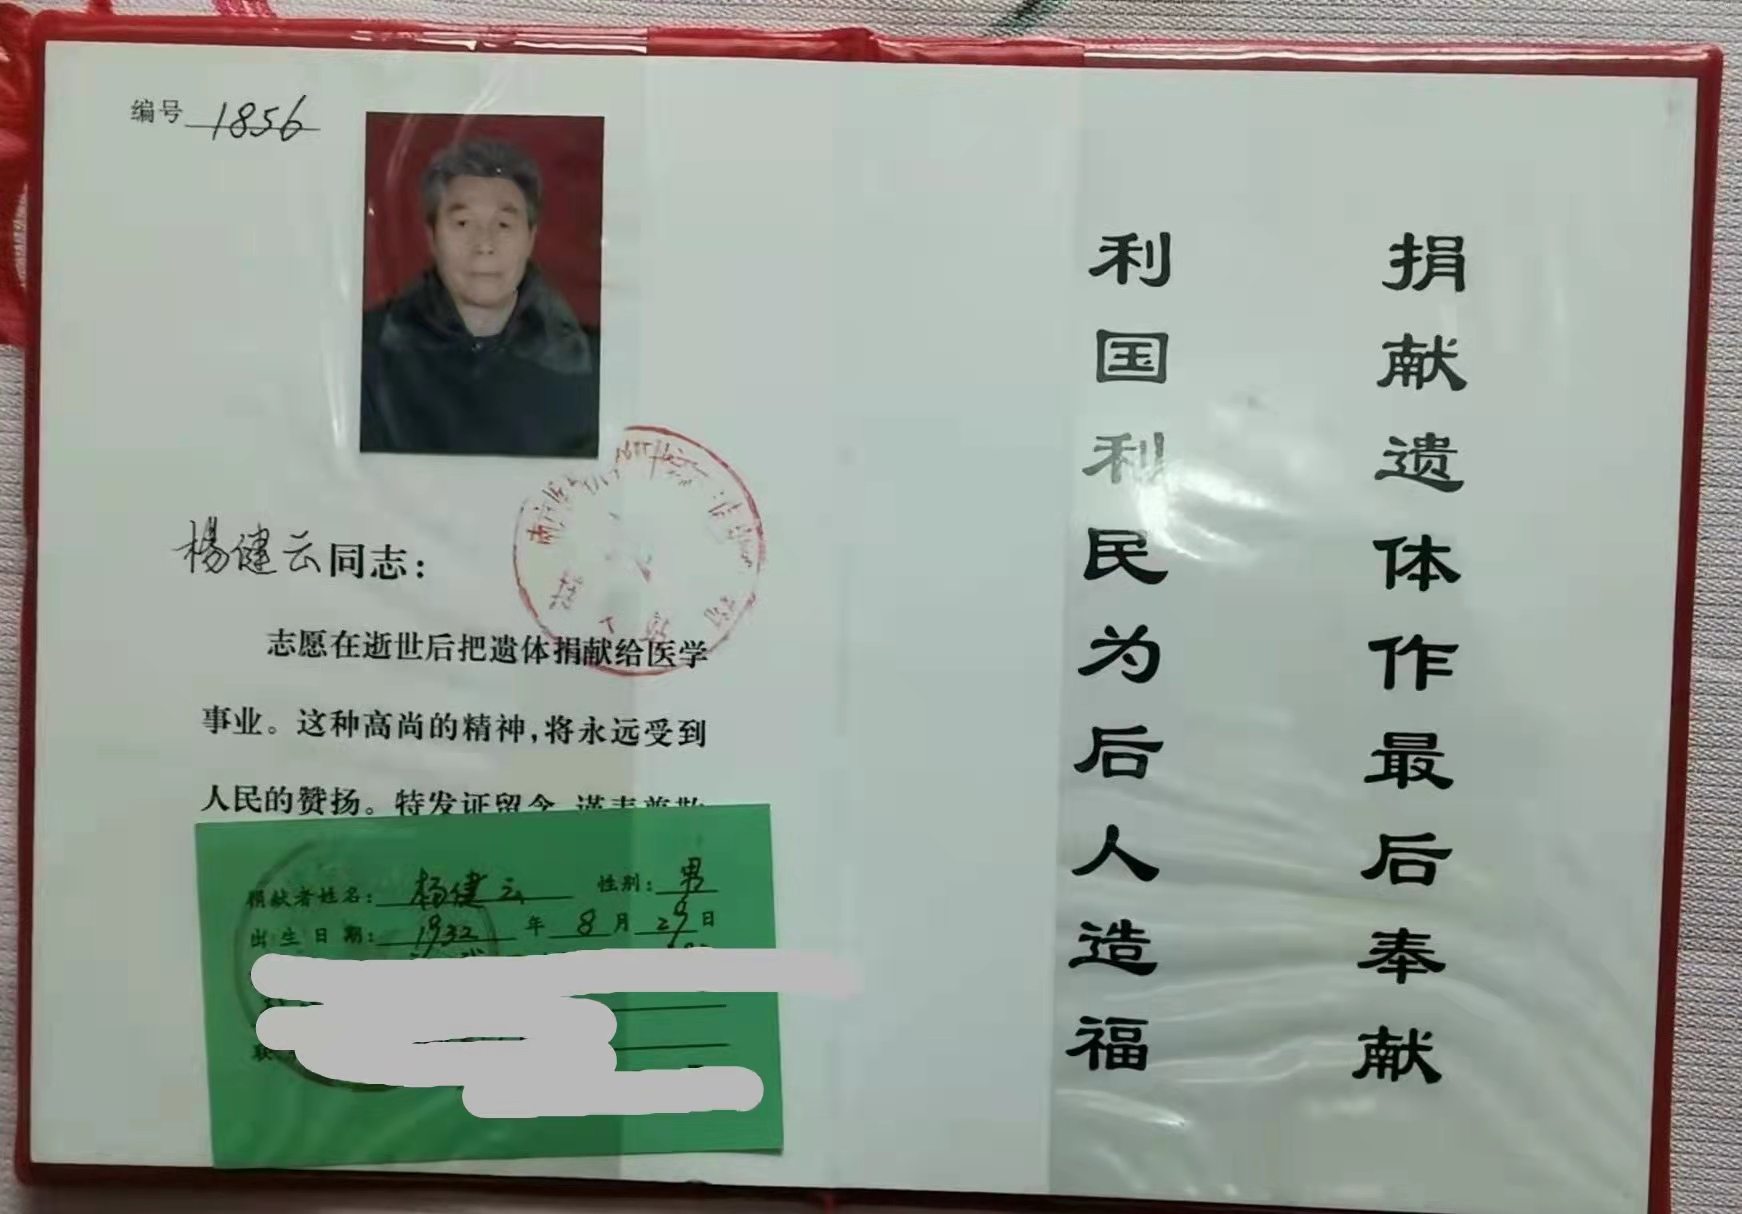 编号 1856
杨健云同志：
志愿在逝世后把遗体捐献给医学
事业。这种高尚的精神，将永远受到
人民的赞扬。特发证留念，谨表尊敬
捐献者姓名：杨健云 性别：男
出生日期：1932年8月29日
捐献遗体作最后奉献
利国利民为后人造福